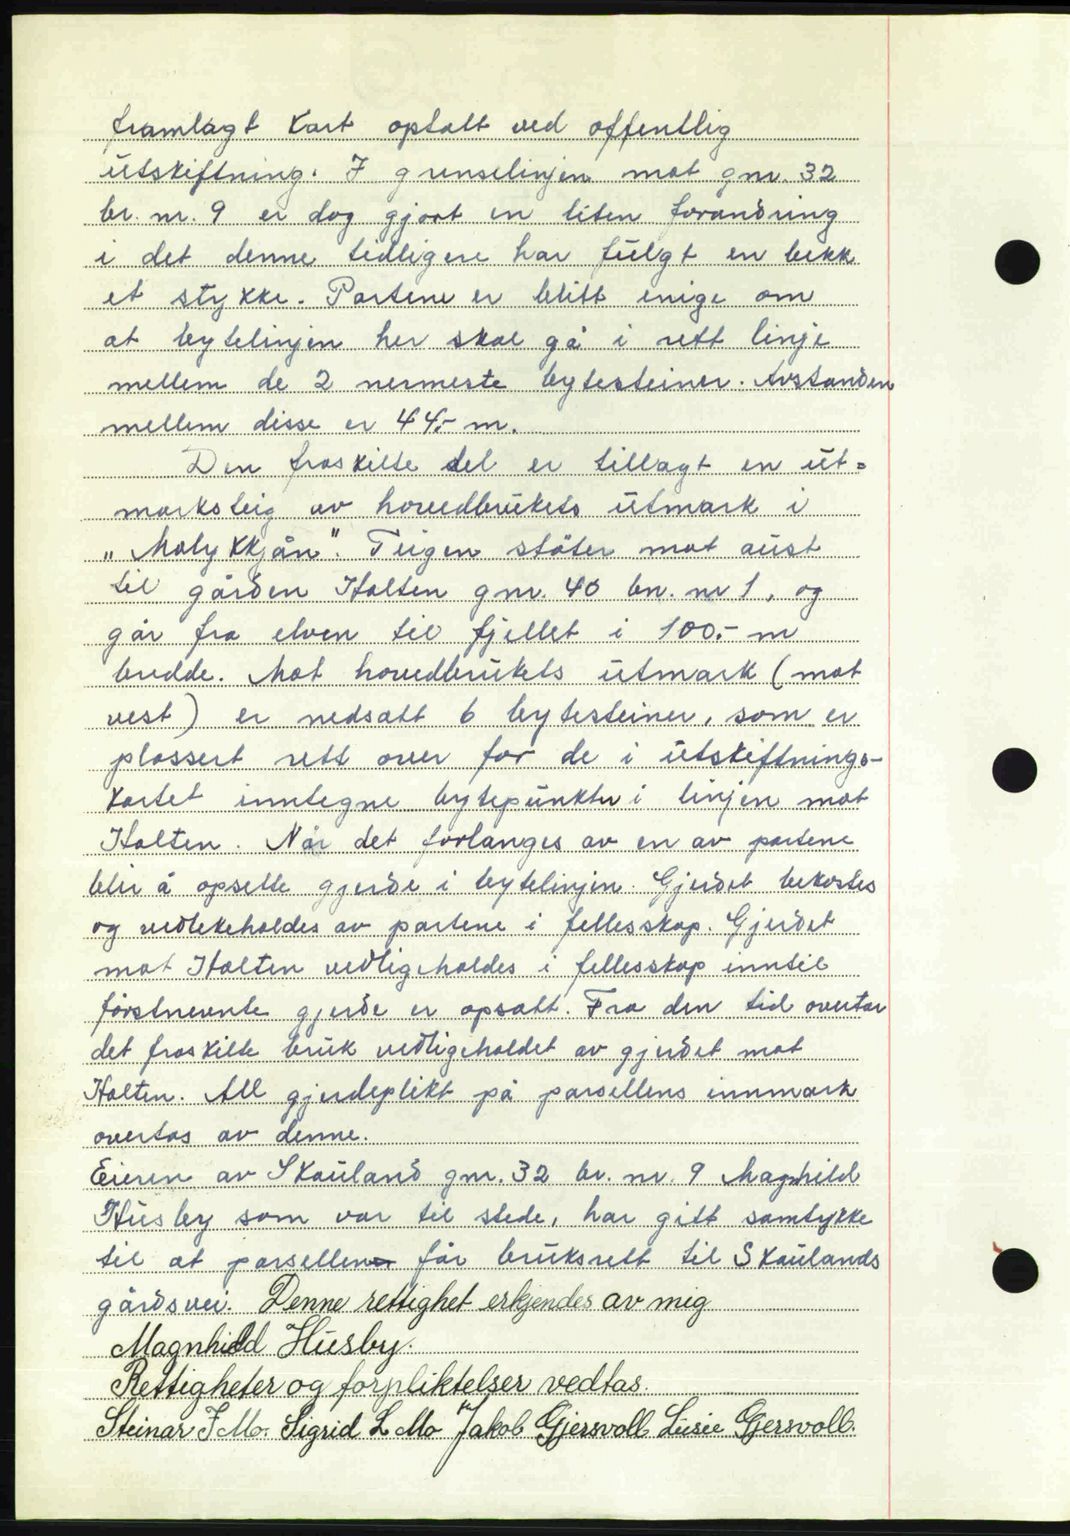 framlagt kart optatt ved offentlig
utskiftning. I grenselinjen mot gnr. 32
br. nr. 9 er dog gjort en liten forandring
i det denne tidligere har fulgt en bekk
et stykke. Partene er blitt enige om
at bytelinjen her skal gå i rett linje
mellem de 2 nermeste bytesteiner. Avstanden
mellem disse er 44,- m.
Den fraskilte del er tillagt en ut=
marksteig av hovedbrukets utmark i
„Molykkjån". Teigen støter mot aust
til gården Holten gnr. 40 bn. nr 1, og
går fra elven til fjellet i 100,- m
bredde. Mot hovedbrukets utmark (mot
vest) er nedsatt 6 bytesteiner, som er
plassert rett over for de i utskiftnings-
kartet inntegne bytepunkter i linjen mot
Holten. Når det forlanges av en av partene
blir å opsette gjerde i bytelinjen. Gjerdet bekostes
og vedlekeholdes av partene i fellesskap. Gjerdet
mot Holten vedligeholdes i fellesskap inntil
førstnevnte gjerde er opsatt. Fra den tid overtar
det fraskilte bruk vedligeholdet av gjerdet mot
Holten. All gjerdeplikt på parsellens innmark
overtas av denne.
Eieren av Skauland gnr. 32 br. nr. 9 Magnhild
Husby som var til stede, har gitt samtykke
til at parsellen får bruksrett til Skaulands
gårdsvei. Denne rettighet erkjendes av mig
Magnhild Husby.
Rettigheter og forpliktelser vedtas.
Steinar J Mo. Sigrid L Mo Jakob Gjersvoll Lusie Gjersvoll.